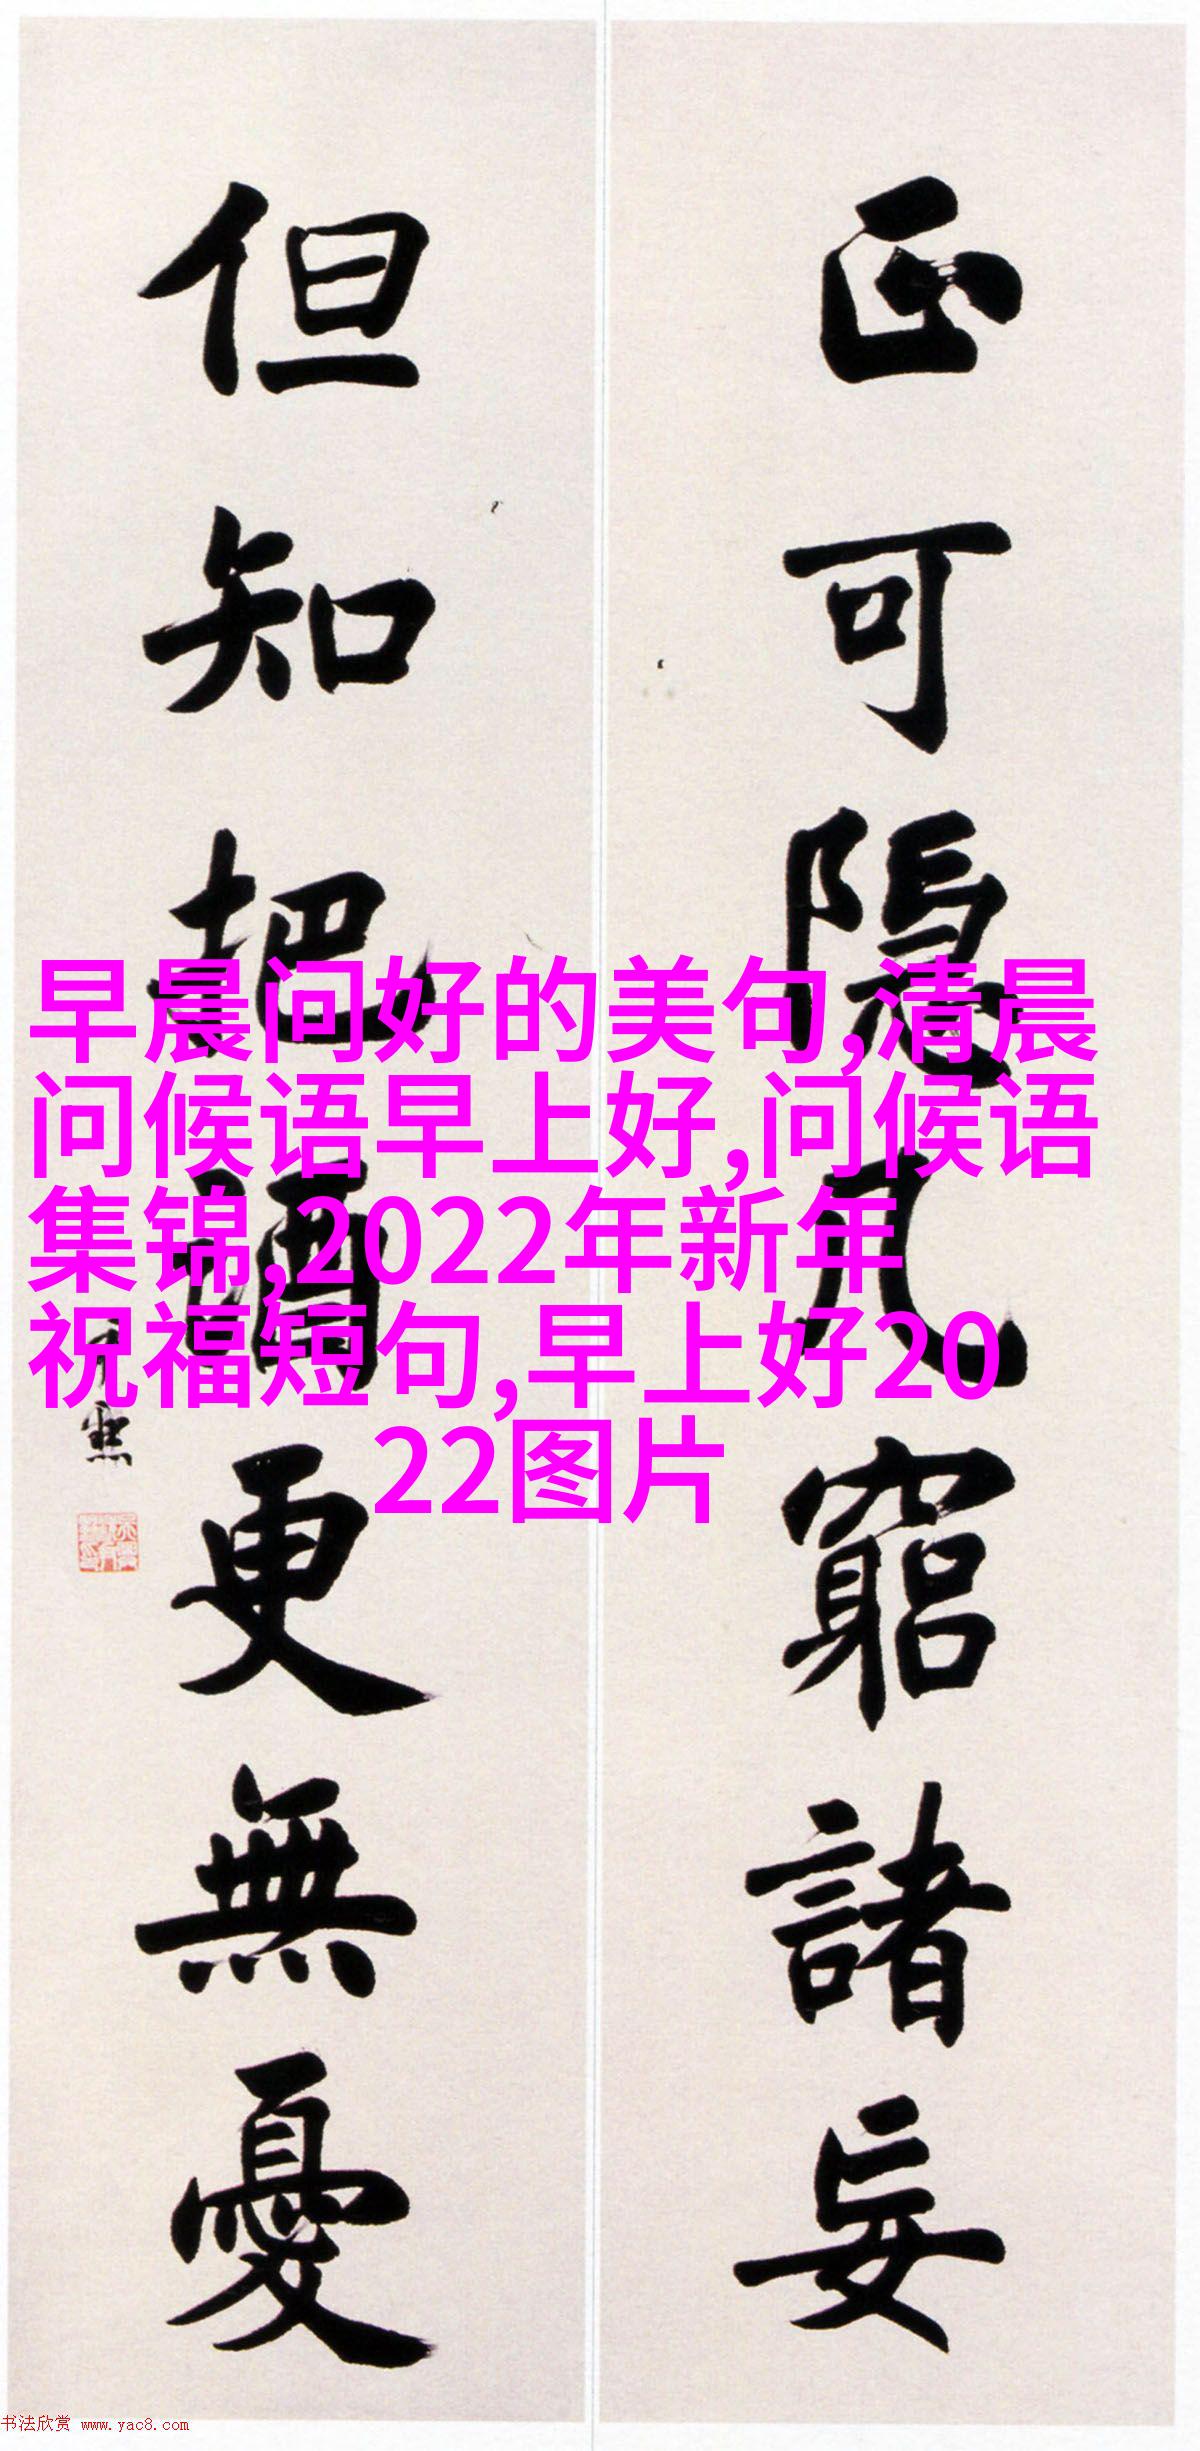 正可隱几窮諸妄
但知把酒更無憂
早晨问好的美句,清晨
问候语早上好,问候语
集锦,2022年新年
祝福短句,早上好20
22图片
书法欣赏 www.yac8.com